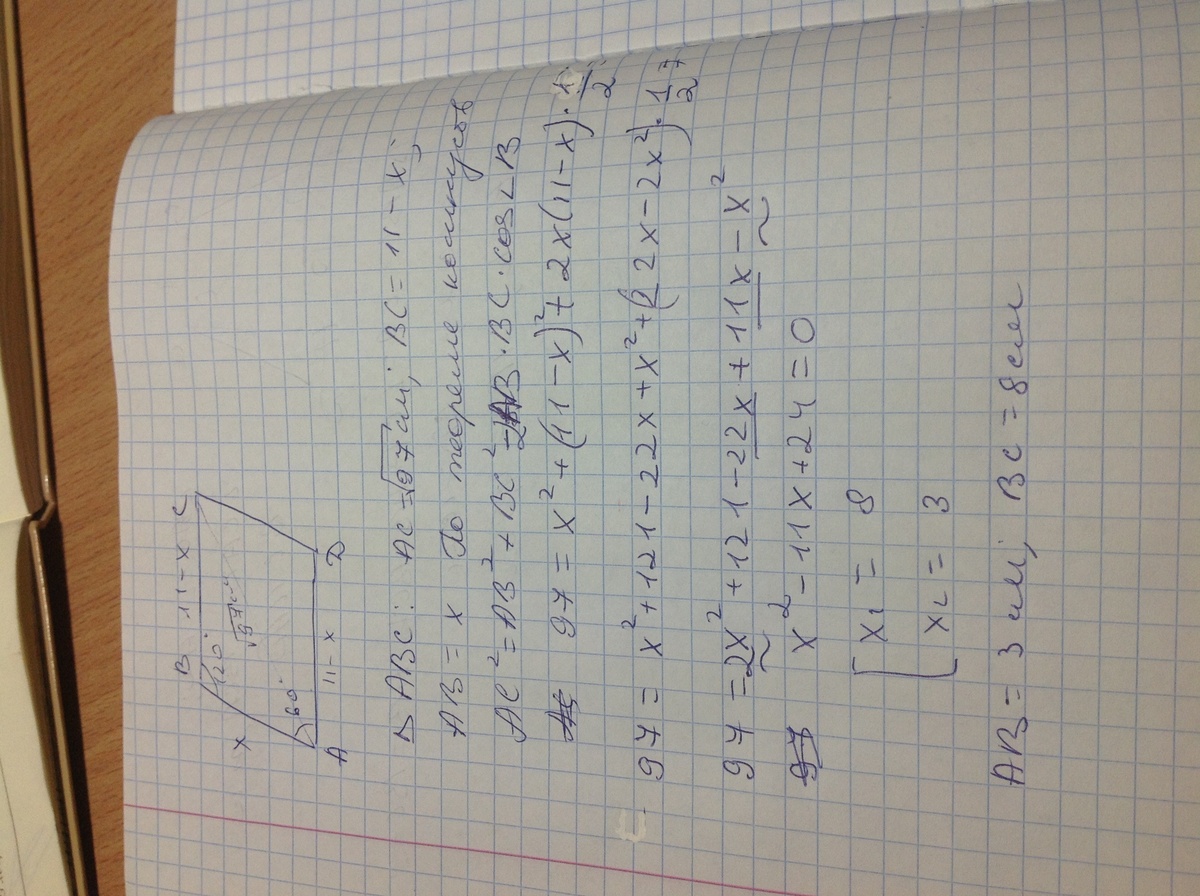 B 11 - x C
x 120° √97см
60°
A 11 - x D
Δ ABC: AC = √97 см; BC = 11 - x;
AB = x По теореме косинусов
AC² = AB² + BC² - 2AB · BC · cos∠B
97 = x² + (11 - x)² + 2x(11 - x) · 1/2
97 = x² + 121 - 22x + x² + (22x - 2x²) · 1/2
97 = 2x² + 121 - 22x + 11x - x²
x² - 11x + 24 = 0
[ x₁ = 8
x₂ = 3
AB = 3 см; BC = 8 см